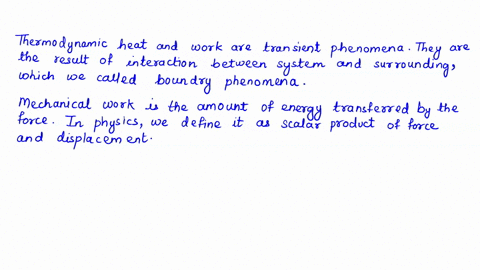 Thermodynamic heat and work are transient phenomena. They are
the result of interaction between system and surrounding,
which we called boundry phenomena.
Mechanical work is the amount of energy transferred by the
force. In physics, we define it as scalar product of force
and displacement.